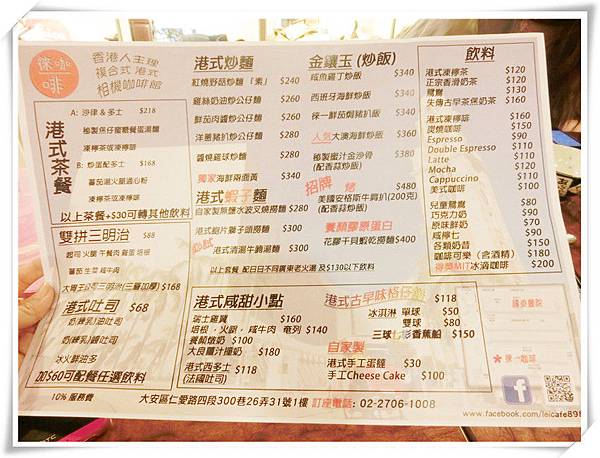 徠咖啡
香港人主理
複合式 港式
相機咖啡館
港式茶餐
A: 沙律 & 多士 $218
秘製焦仔蜜糖餐蛋湯麵
凍檸茶或凍檸啡
B: 炒蛋配多士 $168
蕃茄湯火腿通心粉
凍檸茶或凍檸啡
以上茶餐+$30可轉其他飲料
雙拼三明治 $88
起司 火腿 午餐肉 雞蛋 培根
蕃茄 生菜 咸牛肉
三明治(三層加厚) $168
港式吐司 $68
奶(煉乳)油吐司
奶(煉乳)醬吐司
冰火鮮油多
加$60可配餐任選飲料
10% 服務費
港式炒麵
紅燒野菇炒麵「素」 $280
雞絲奶油炒公仔麵 $260
鮮茄肉醬炒公仔麵 $240
洋蔥豬扒炒公仔麵 $280
醬燒雞球炒麵 $280
獨家 海鮮兩面黃 $340
港式蝦子麵
自家製原鹽水波叉燒撈麵 $280
港式鮨片獅子頭撈麵 $300
必試 港式清湯牛腩湯麵 $300
金鑲玉 (炒飯)
咸魚雞丁炒飯 $340
西班牙海鮮炒飯 $340
徠一鮮茄焗豬扒飯 $340
人氣 大澳海鮮炒飯 $360
秘製蜜汁金沙骨 $380
(配香蒜炒飯)
招牌 烤 $480
美國安格斯牛肩扒(200克)
(配香蒜炒飯)
養顏膠原蛋白
花膠干貝蝦乾撈麵 $400
以上套餐, 配日日不同廣東老火湯 及$130以下飲料
飲料
港式凍檸茶 $120
正宗香滑奶茶 $120
鴛鴦 $130
失傳古早茶焦奶茶 $160
港式凍檸啡 $160
炭燒咖啡 $150
Espresso $90
Double Espresso $110
Latte $110
Mocha $120
Cappuccino $110
美式咖啡 $100
兒童鴛鴦 $80
巧克力奶 $90
原味鮮奶 $70
咸檸七 $90
各類奶昔 $150
咖啡可樂 (含酒精) $180
得獎MIT冰滴咖啡 $200
港式咸甜小點
瑞士雞翼 $160
培根、火腿、咸牛肉 奄列 $140
養顏燉奶 $100
大良薑汁撞奶 $180
港式西多士 $118
(法國吐司)
港式古早味格仔餅 $118
冰淇淋 單球 $50
雙球 $80
三球七彩香蕉船 $150
自家製
港式手工蛋撻 $30
手工Cheese Cake $100
大安區仁愛路四段300巷26弄31號1樓 訂座電話: 02-2706-1008
徠一咖啡
f
www.facebook.com/leicafe89